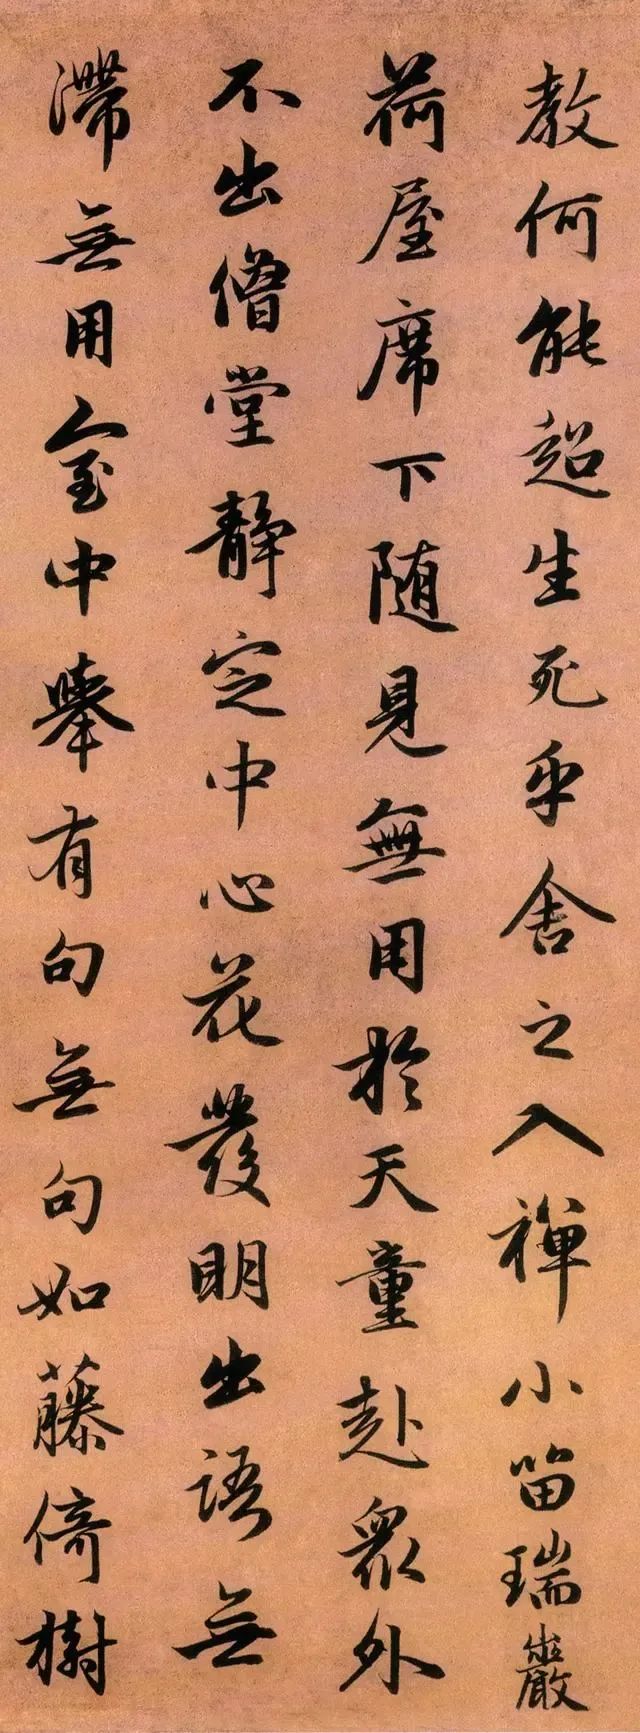 教何能超生死乎舍之入禅小笛瑞巖
荷屋席下随見無用於天童赴衆外
不出僧堂静定中心花發明出语無
滞無用室中举有句無句如藤倚樹